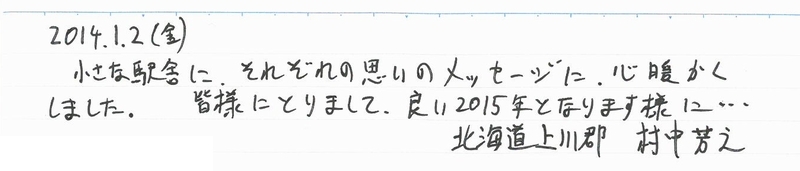 2014.1.2(金)
小さな駅舎に、それぞれの思いのメッセージに、心暖かく
しました。 皆様にとりまして、良い2015年となります様に…
北海道上川郡 村中芳之